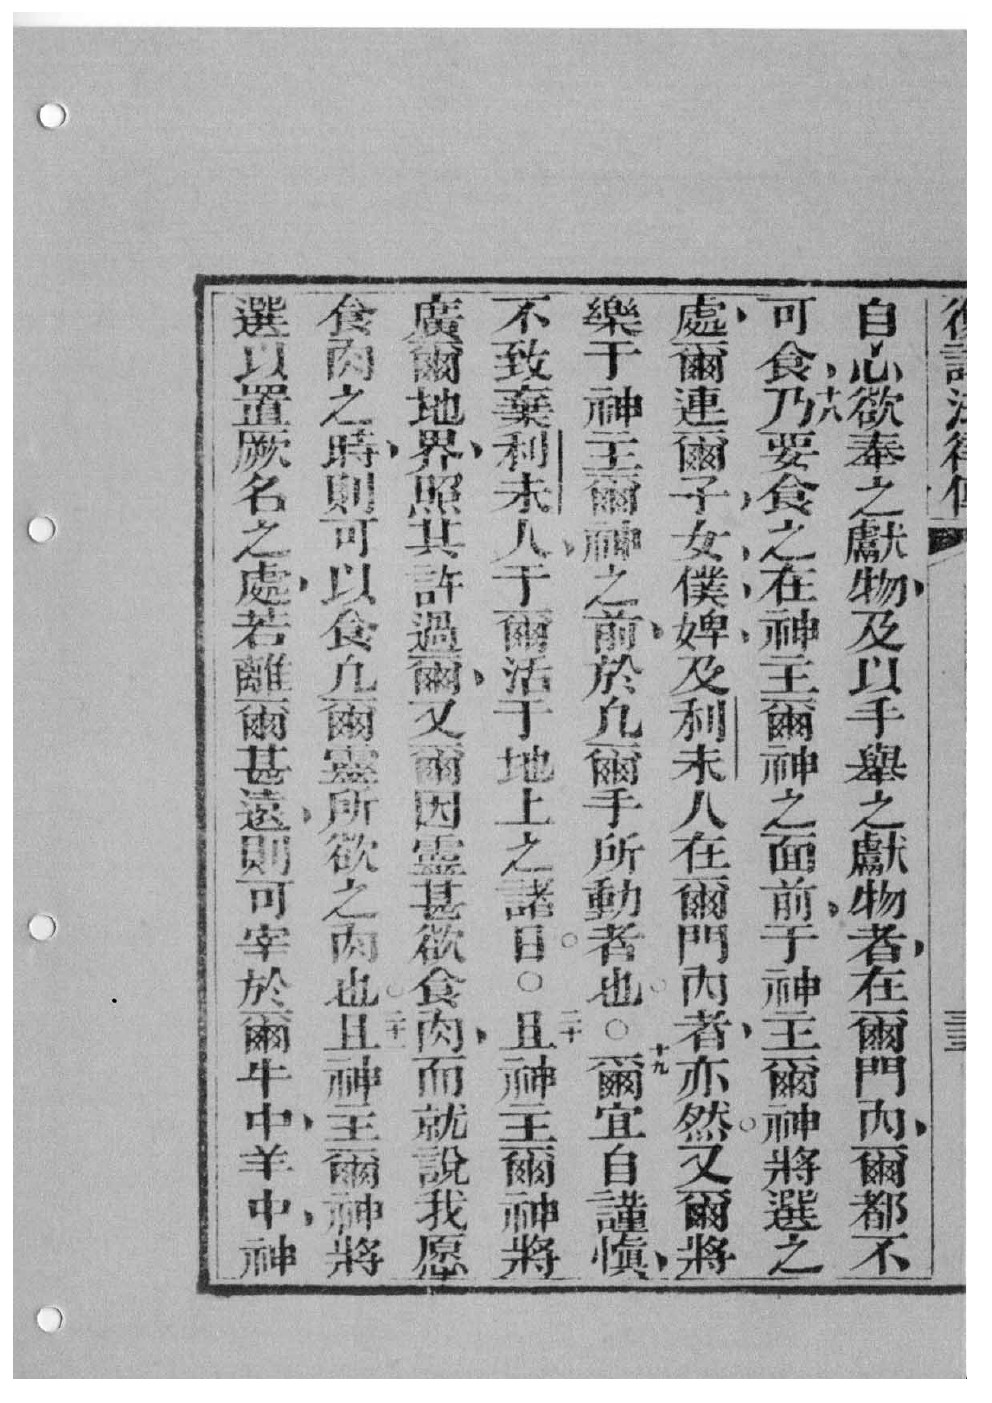 復講法律傳 三三
自心欲奉之獻物、及以手舉之獻物者、在爾門內、爾都不
可食、十八乃要食之在神主爾神之面前、于神主爾神將選之
處、爾連爾子、女、僕、婢、及利未人在爾門內者、亦然。又爾將
樂于神主爾神之前、於凡爾手所動者也。○十九爾宜自謹慎、
不致棄利未人、于爾活于地上之諸日。○二十且神主爾神將
廣爾地界、照其許過爾、又爾因靈甚欲食肉、而就說我愿
食肉之時、則可以食凡爾靈所欲之肉也。二十一且神主爾神將
選以置厥名之處、若離爾甚遠、則可宰於爾牛中、羊中、神